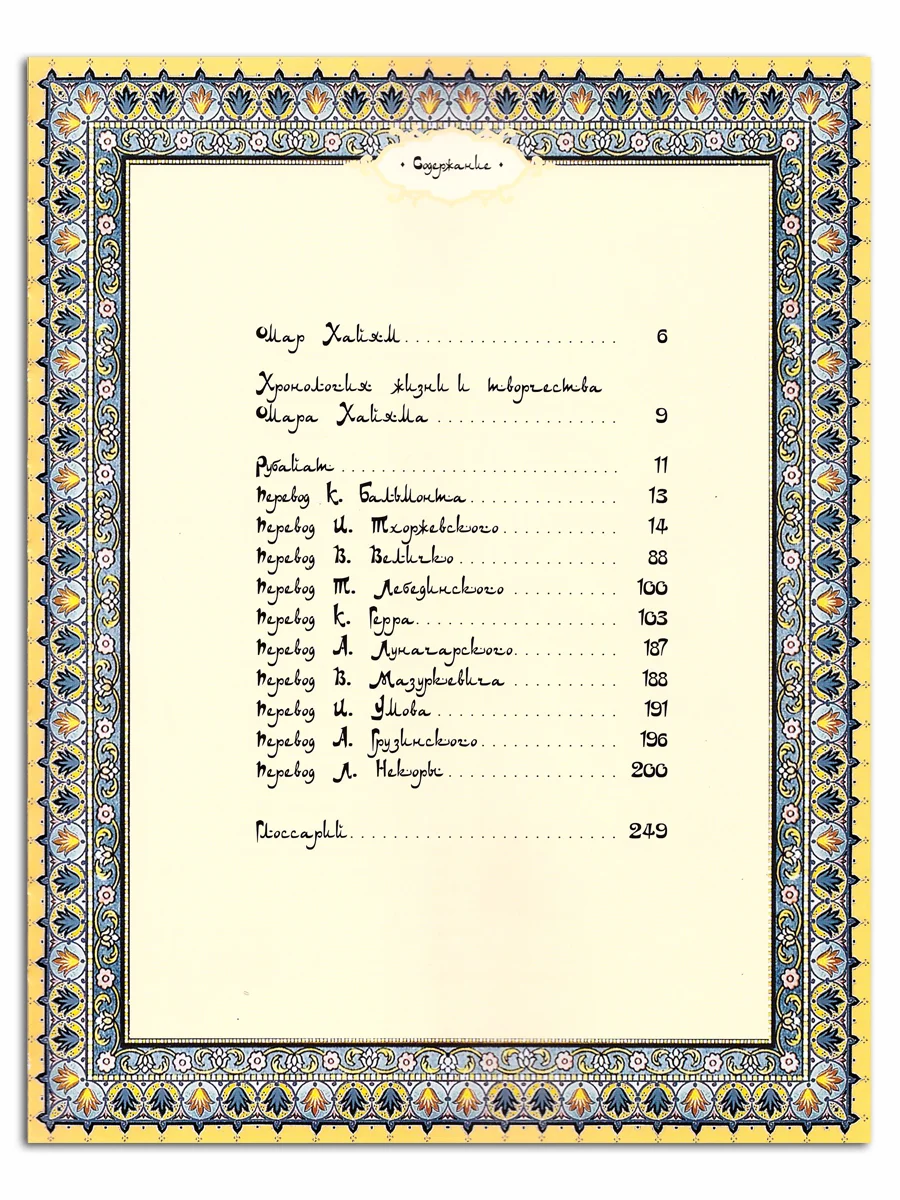 • Содержание •
Омар Хайям.................... 6
Хронология жизни и творчества
Омара Хайяма ................. 9
Рубайат .......................... 11
Перевод К. Бальмонта.............. 13
Перевод И. Тхоржевского........... 14
Перевод В. Величко ............... 88
Перевод Т. Лебединского .......... 100
Перевод К. Герра.................. 103
Перевод А. Луначарского.......... 187
Перевод В. Мазуркевича .......... 188
Перевод И. Умова ................. 191
Перевод А. Грузинского............. 196
Перевод Л. Некоры................ 200
Глоссарий......................... 249